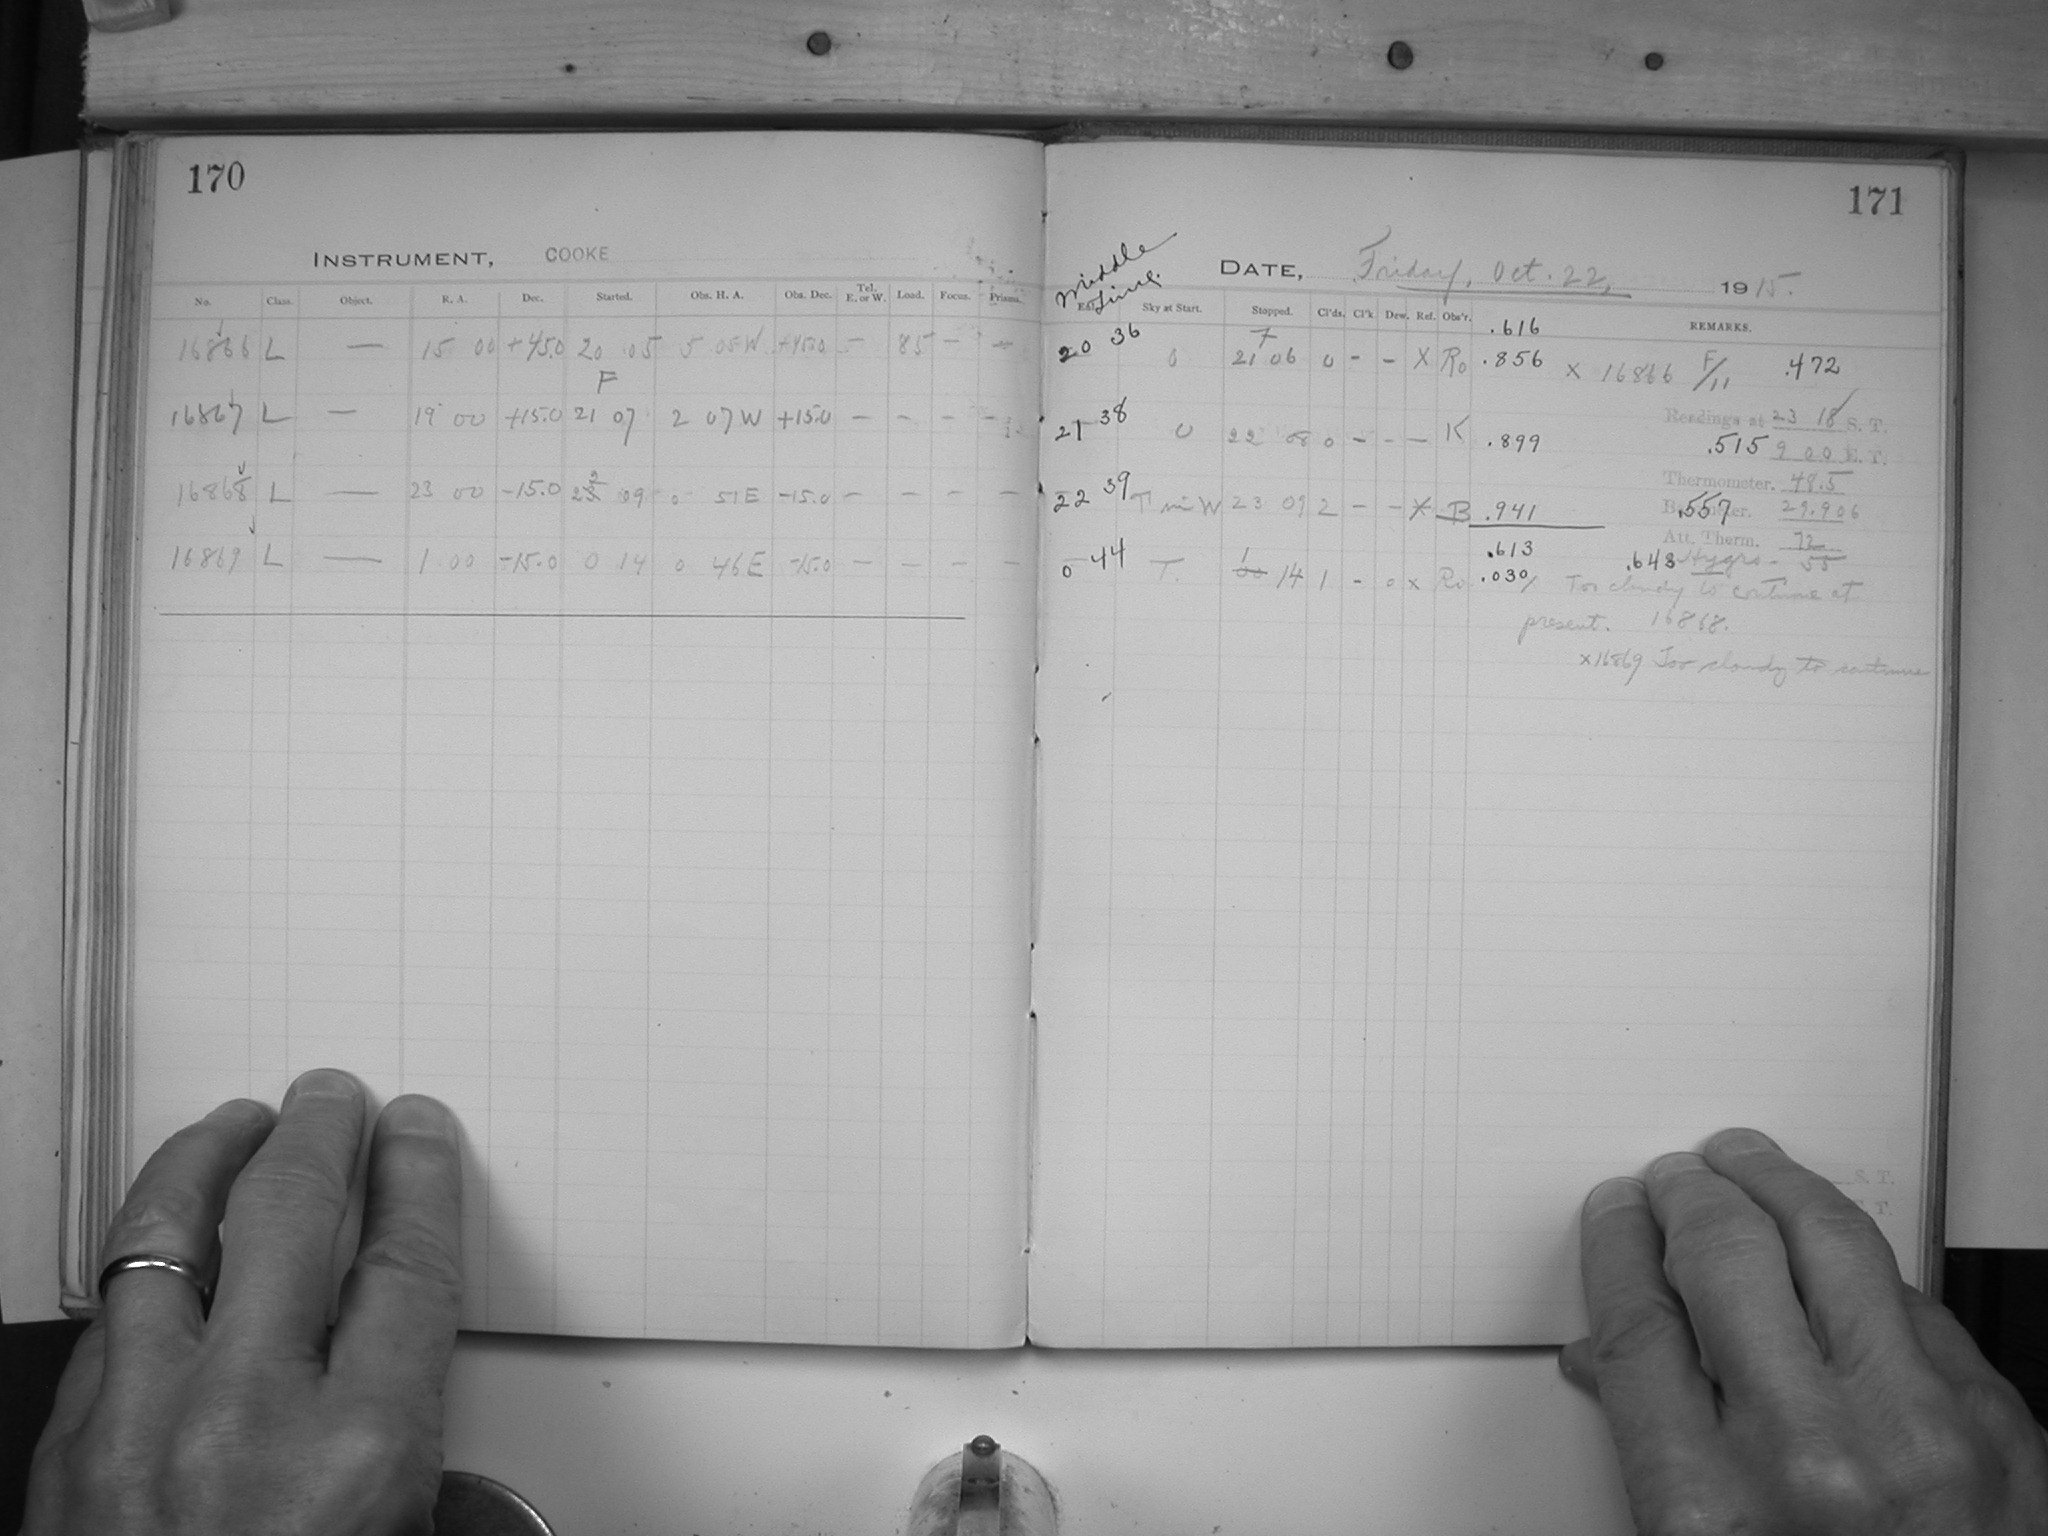 170
INSTRUMENT, COOKE
No. Class. Object. R. A. Dec. Started. Obs. H. A. Obs. Dec. Tel. E. or W. Load. Focus. Prisms.
16866 L — 15 00 +45.0 20 05 5 05 W +45.0 — 85 — —
F
16867 L — 19 00 +15.0 21 07 2 07 W +15.0 — — — —
16868 L — 23 00 -15.0 22 09 0 51 E -15.0 — — — —
16869 L — 1 00 -15.0 0 14 0 46 E -15.0 — — — —
171
Middle Time.
DATE, Friday, Oct. 22, 1915.
Sky at Start. Stopped. Cl'ds. Cl'k Dew. Ref. Obs'r. REMARKS.
.616
20 36 0 21 06 0 - - X Ro .856 x 16866 F/11 .472
Readings at 23 18 S. T.
21 38 0 22 08 0 - - - K .899 .515 9 00 E. T.
Thermometer. 48.5
22 39 T in W 23 09 2 - - X B .941 .557 Barometer. 29.906
Att. Therm. 72
.613 .643 Hygro - 55
0 44 T. 1 14 1 - 0 x Ro .030 Too cloudy to continue at
present. 16868.
x16869 Too cloudy to continue
S. T.
T.